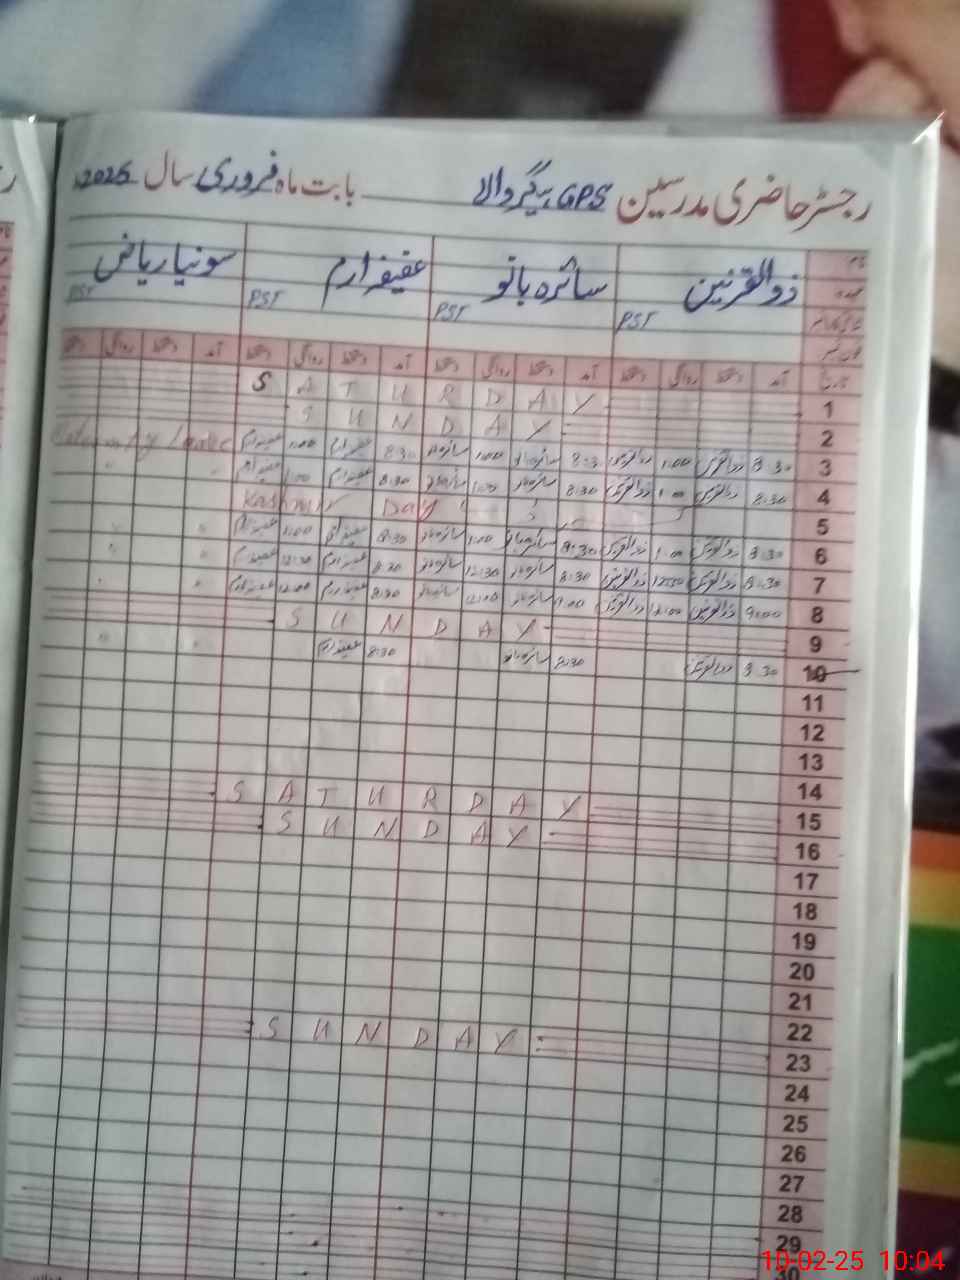 رجسٹر حاضری مدرسین GPS بیگر والے بابت ماہ فروری سال 2025
نام ذوالقرنین سائرہ بانو عفیفہ ارم سونیا ریاض
عہدہ PST PST PST PST
تاریخ آمد دستخط روانگی دستخط آمد دستخط روانگی دستخط آمد دستخط روانگی دستخط آمد دستخط روانگی دستخط
1 SATURDAY
2 SUNDAY
3 8:30 ذوالقرنین 1:00 ذوالقرنین 8:30 سائرہ بانو 1:00 سائرہ بانو 8:30 عفیفہ ارم 1:00 عفیفہ ارم Leave
4 8:30 ذوالقرنین 1:00 ذوالقرنین 8:30 سائرہ بانو 1:00 سائرہ بانو 8:30 عفیفہ ارم 1:00 عفیفہ ارم "
5 Kashmir Day
6 8:30 ذوالقرنین 1:00 ذوالقرنین 8:30 سائرہ بانو 1:00 سائرہ بانو 8:30 عفیفہ ارم 1:00 عفیفہ ارم " "
7 8:30 ذوالقرنین 12:30 ذوالقرنین 8:30 سائرہ بانو 12:30 سائرہ بانو 8:30 عفیفہ ارم 12:30 عفیفہ ارم " "
8 9:00 ذوالقرنین 12:00 ذوالقرنین 9:00 سائرہ بانو 12:00 سائرہ بانو عفیفہ ارم 12:00 عفیفہ ارم " "
9 SUNDAY
10 8:30 ذوالقرنین 8:30 سائرہ بانو 8:30 عفیفہ ارم " "
11
12
13
14
15 SATURDAY
16 SUNDAY
17
18
19
20
21
22
23 SUNDAY
24
25
26
27
28
29
30
10-02-25 10:04